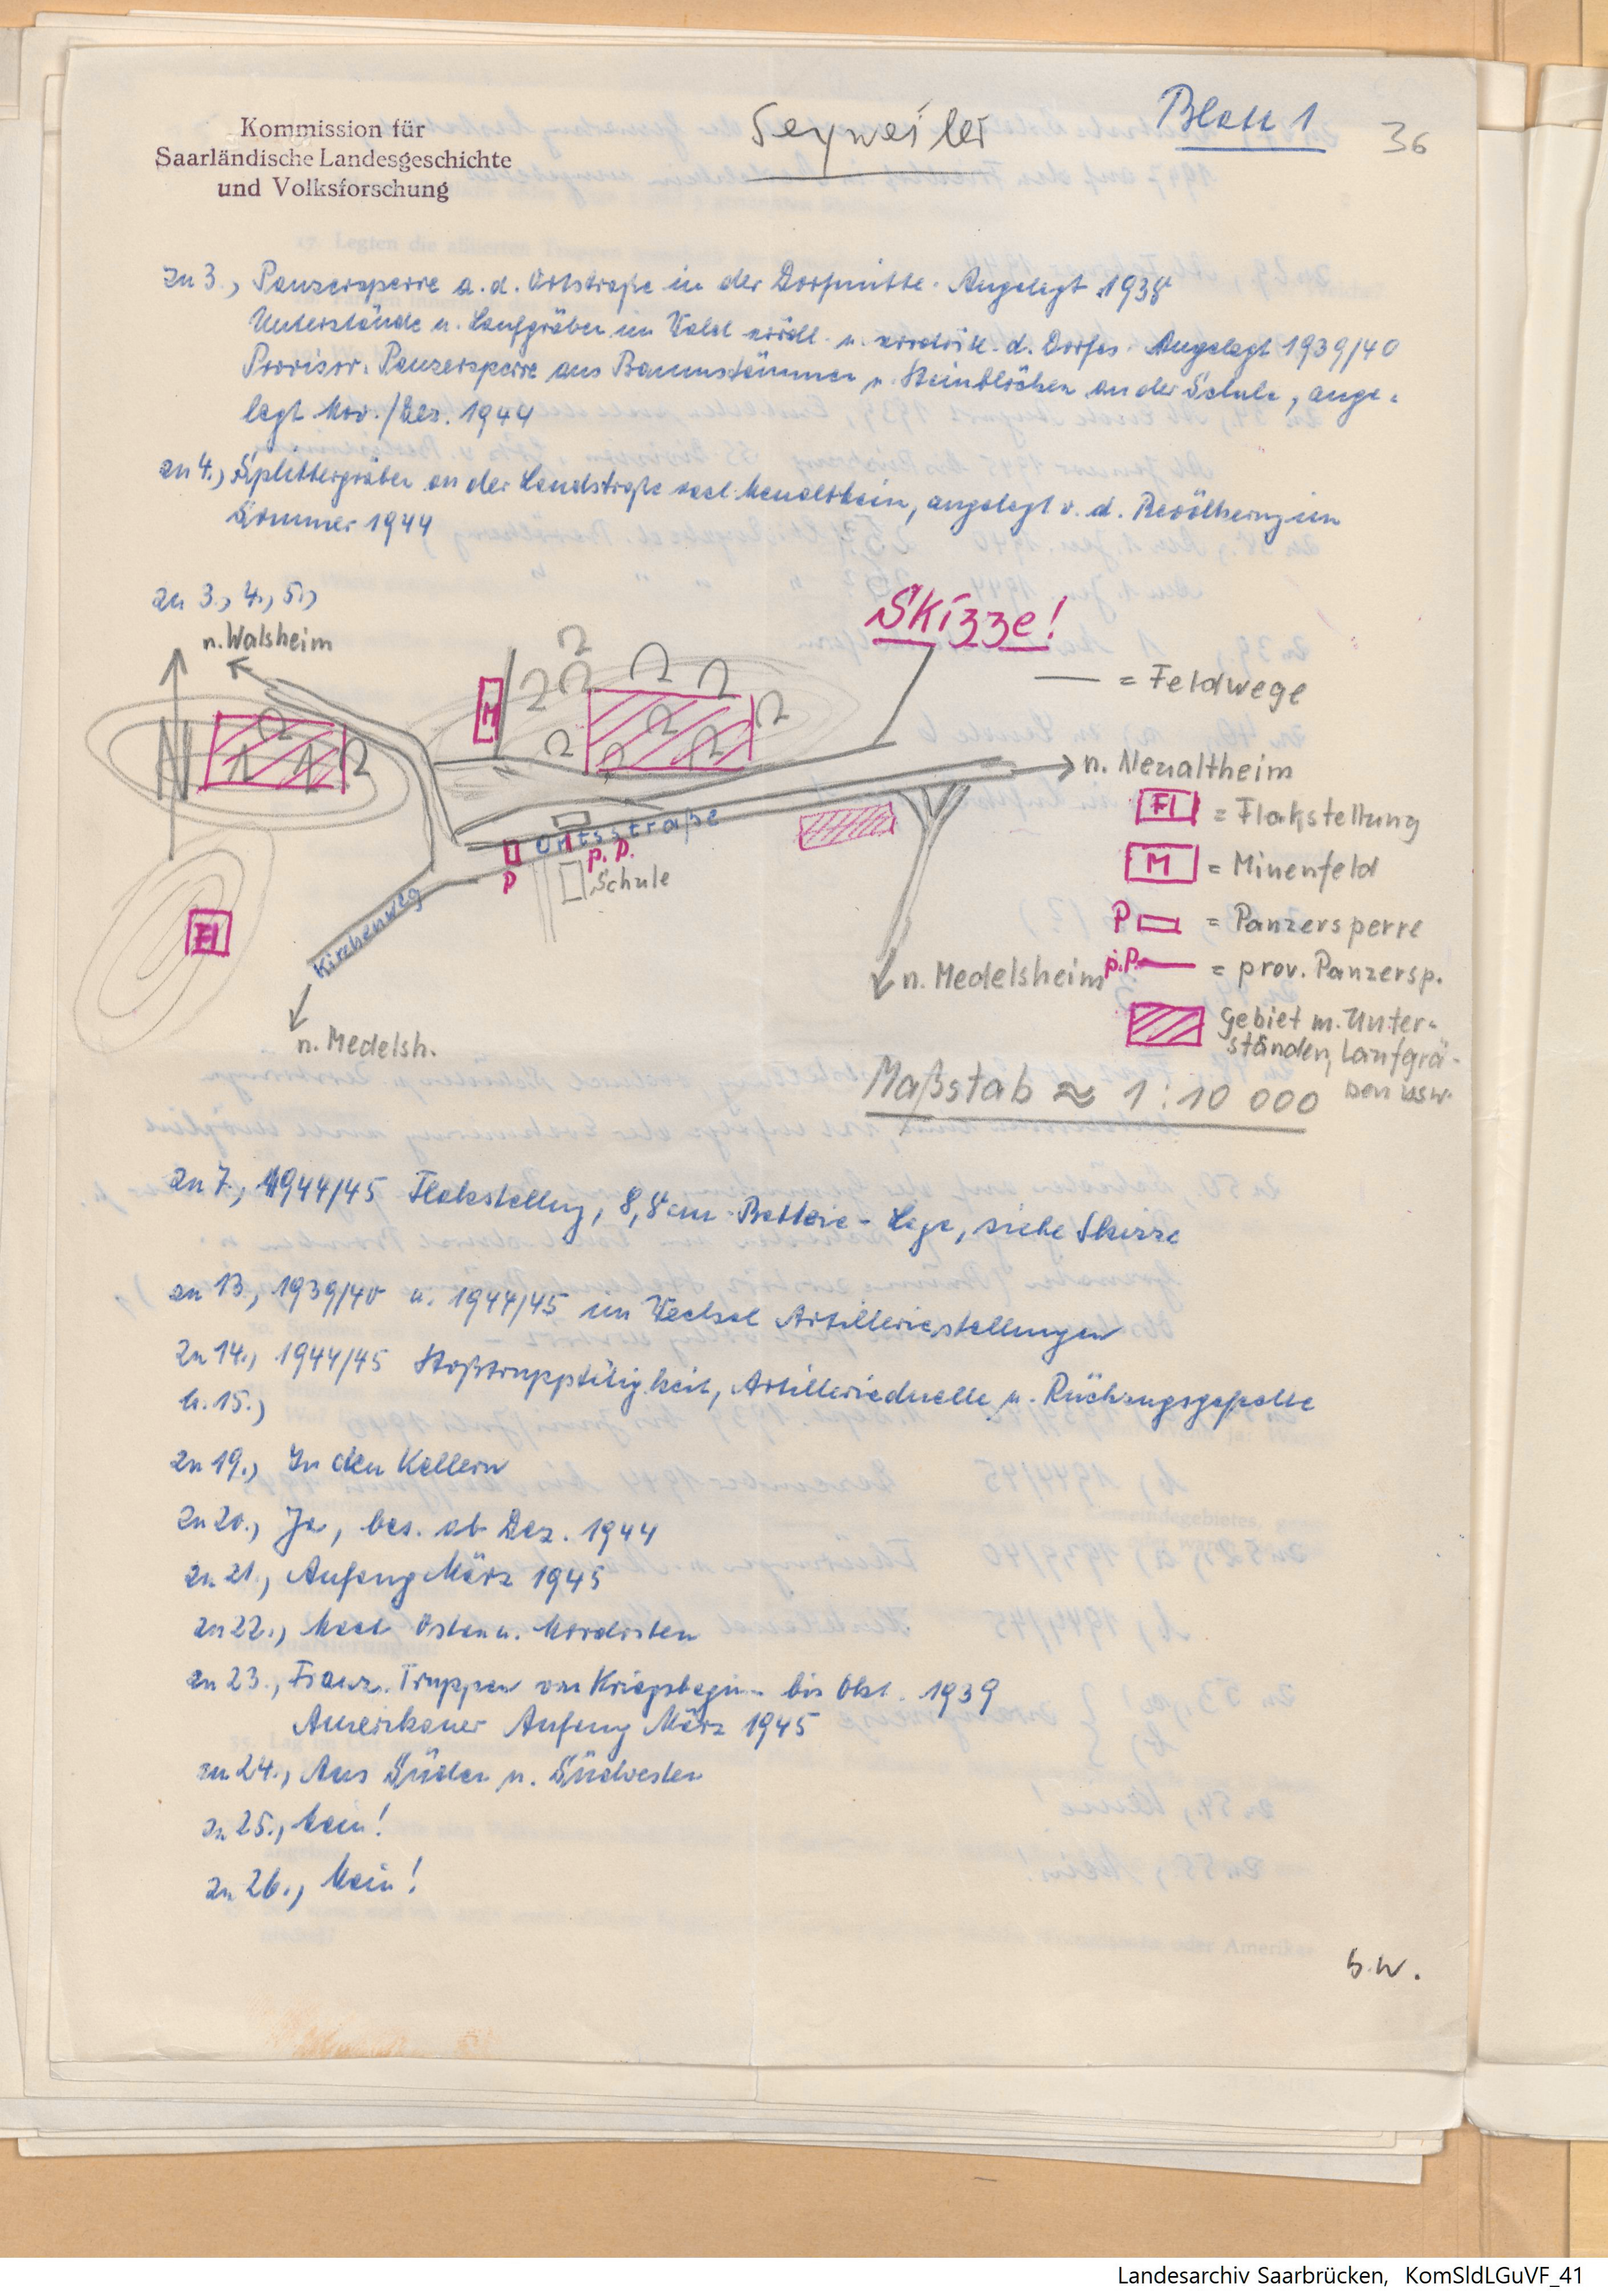 Kommission für
Saarländische Landesgeschichte
und Volksforschung
Seyweiler
Blatt 1
36
zu 3., Panzersperre a. d. Ortstraße in der Dorfmitte. Angelegt 1938
Unterstände u. Laufgräben im Wald nördl. u. nordöstl. d. Dorfes. Angelegt 1939/40
Provisor. Panzersperre aus Baumstämmen u. Steinblöcken an der Schule, ange-
legt Nov./Dez. 1944
zu 4., Splittergräben an der Landstraße nach Neualtheim, angelegt v. d. Bevölkerung im
Sommer 1944
zu 3., 4., 5.,
n. Walsheim
Skizze!
— = Feldwege
N
M
n. Neualtheim
Fl = Flakstellung
Ortsstraße
P
p. P.
Schule
M = Minenfeld
Kirchenweg
Fl
P = Panzersperre
n. Medelsheim
p.P. = prov. Panzersp.
n. Medelsh.
Gebiet m. Unter-
ständen, Laufgrä-
ben usw.
Maßstab ≈ 1 : 10 000
zu 7., 1944/45 Flakstellung, 8,8 cm-Batterie - Lage, siehe Skizze
zu 13., 1939/40 u. 1944/45 im Wechsel Artilleriestellungen
zu 14., 1944/45 Stoßtrupptätigkeit, Artillerieduelle u. Rückzugsgefechte
u. 15.,
zu 19., In den Kellern
zu 20., Ja, bes. ab Dez. 1944
zu 21., Anfang März 1945
zu 22., Nach Osten u. Nordosten
zu 23., Franz. Truppen von Kriegsbeginn bis Okt. 1939
Amerikaner Anfang März 1945
zu 24., Aus Süden u. Südwesten
zu 25., Nein!
zu 26., Nein!
b.w.
Landesarchiv Saarbrücken, KomSldLGuVF_41